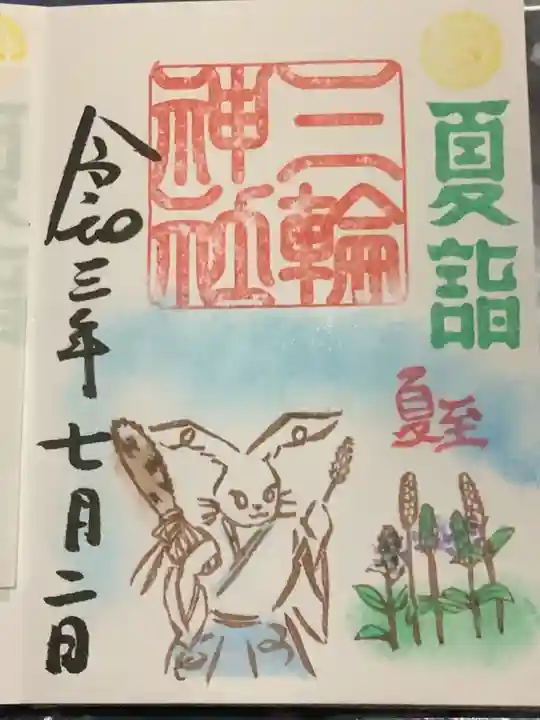 夏詣
夏至
三輪
神社
令和三年七月二日